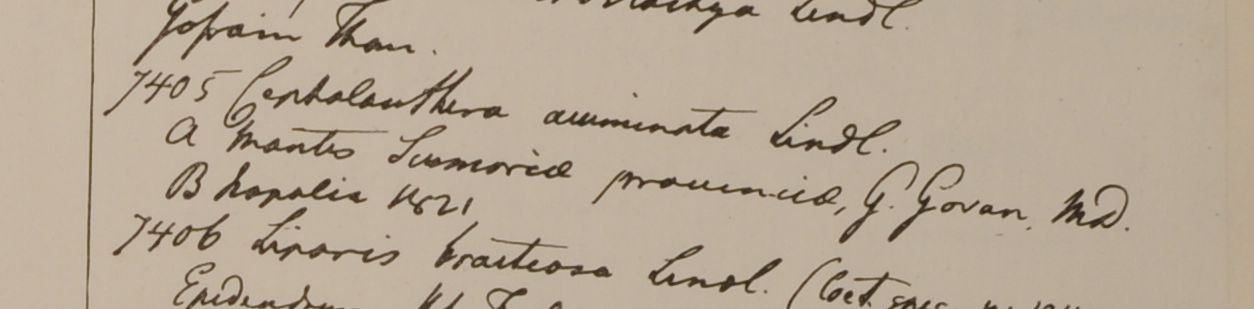 Lindl.
7405 Cephalanthera acuminata Lindl.
A Montes Sirmoriæ provinciæ, G. Govan, MD.
B Napalia 1821
7406 Liparis bracteosa Lindl. (Cat.
Epidendrum